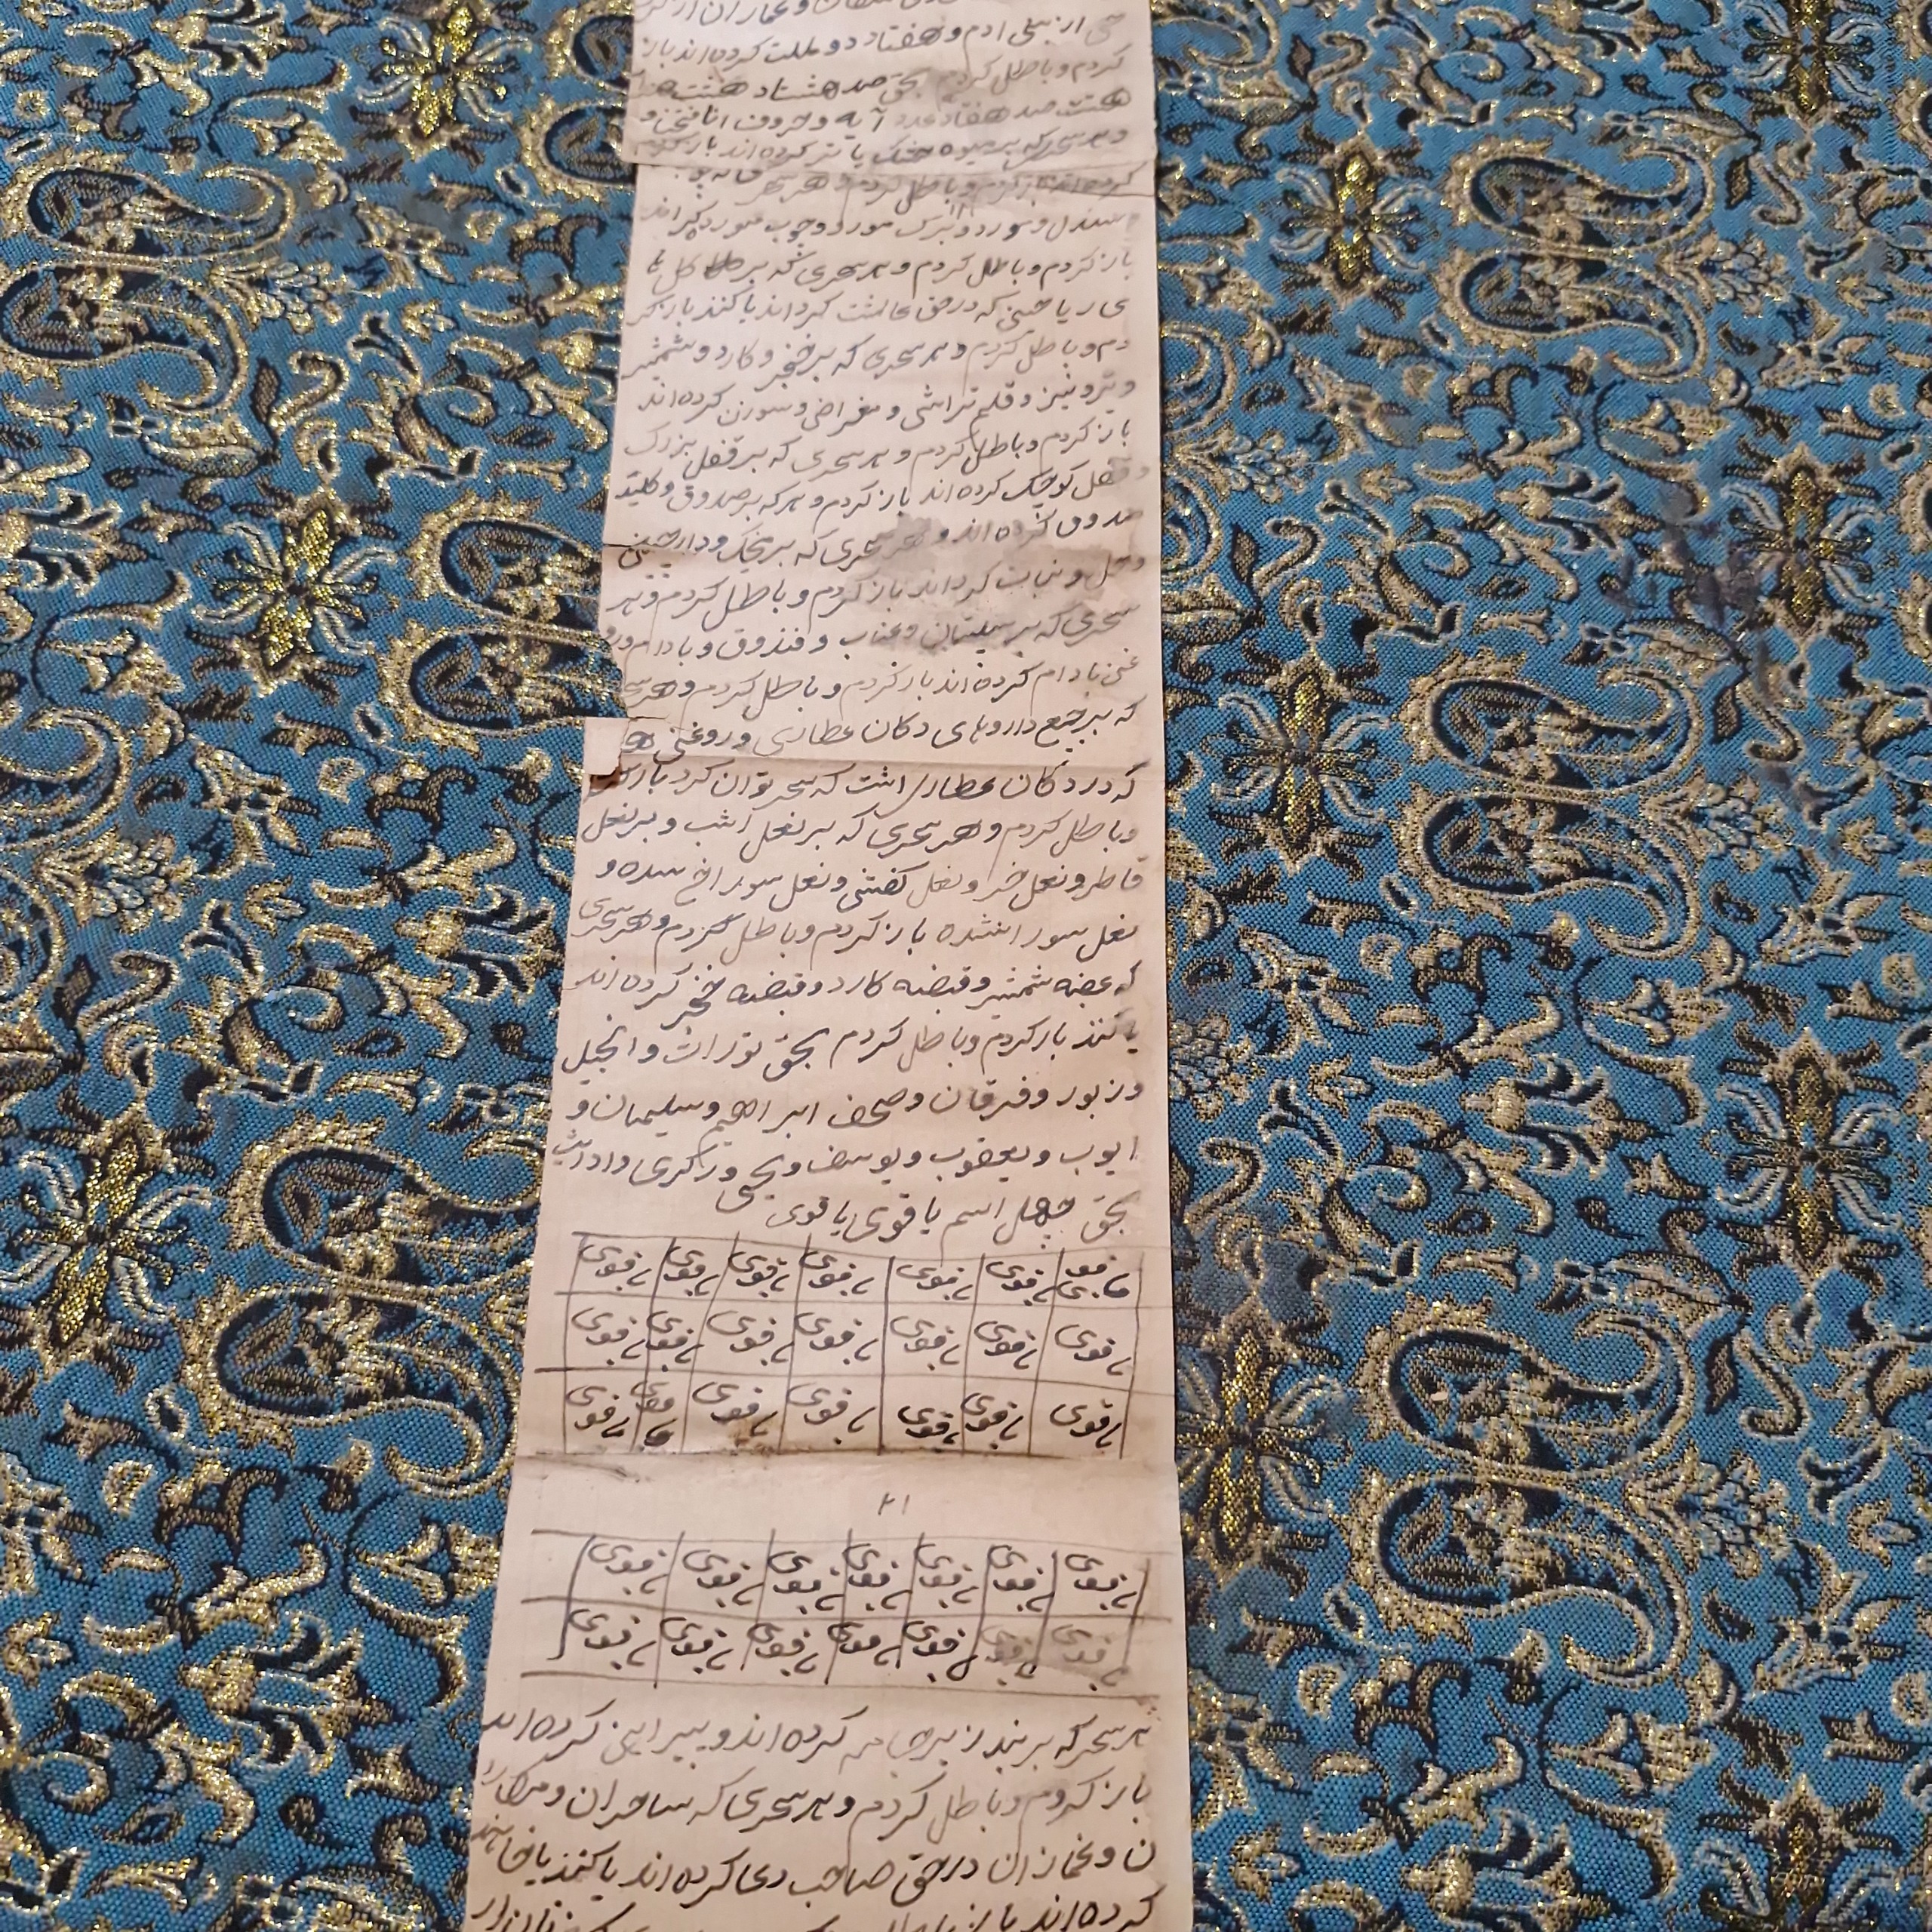 سی از بنی ادم و هفتاد دو ملت کرده اند باز
کردم و باطل کردم بحق صد هشتاد هشت
هشت صد هفتاد عدد آیه و حروف انا فتحنا و
و هر سحر که بر میوه خشک یا تر کرده اند باز کردم
کرده اند باز کردم و باطل کردم و هر سحر
سندل و مورد و برک مورد و چوب مورد
باز کردم و باطل کردم و هر سحری که بر کل
ی ریا حینی که در حق عالمت کرداند یا کنند باز کر
دم و باطل کردم و هر سحری که بر خنجر و کارد و شمشیر
و تیر و نیز و قلم تراشی و مغراض و سوزن کرده اند
باز کردم و باطل کردم و هر سحری که بر قفل بزرک
و قفل کوچک کرده اند باز کردم و هر که بر صدوق و کلید
صدوق کرده اند و هر سحری که بر میخک و دارچین
و هل و نبات کرداند باز کردم و باطل کردم و هر
سحری که بر سپستان و عناب و فندوق و بادام و رو
غن بادام کرده اند باز کردم و باطل کردم و هر سح
که بر جمیع داروهای دکان عطاری و روغنی
که در دکان عطاری اشت که سحر توان کرد باز
و باطل کردم و هر سحری که بر نعل اشب و بر نعل
قاطر و نعل خر و نعل کفشی و نعل سوراخ سده و
نعل سورا نشده باز کردم و باطل کردم و هر سحری
که عضبه شمشیر و قبضه کارد و قبضه خنجر کرده اند
یا کنند باز کردم و باطل کردم بحق تورات و انجیل
و زبور و فرقان و صحف ابراهیم و سلیمان و
ایوب و یعقوب و یوسف و یحیی و زاکری
بحق چهل اسم یا قوی یا قوی
یا قوی یا قوی یا قوی یا قوی یا قوی یا قوی یا قوی
یا قوی یا قوی یا قوی یا قوی یا قوی یا قوی یا قوی
یا قوی یا قوی یا قوی یا قوی یا قوی یا قوی یا قوی
۲۱
یا قوی یا قوی یا قوی یا قوی یا قوی یا قوی یا قوی
یا قوی یا قوی یا قوی یا قوی یا قوی یا قوی یا قوی
هر سحر که بر بند زیر جامه کرده اند و پیراهن کرده اند
باز کردم و باطل کردم و هر سحری که ساحران و مکار
ن و غمازان در حق صاحب دعا کرده اند یا کنند یا
کرده اند باز